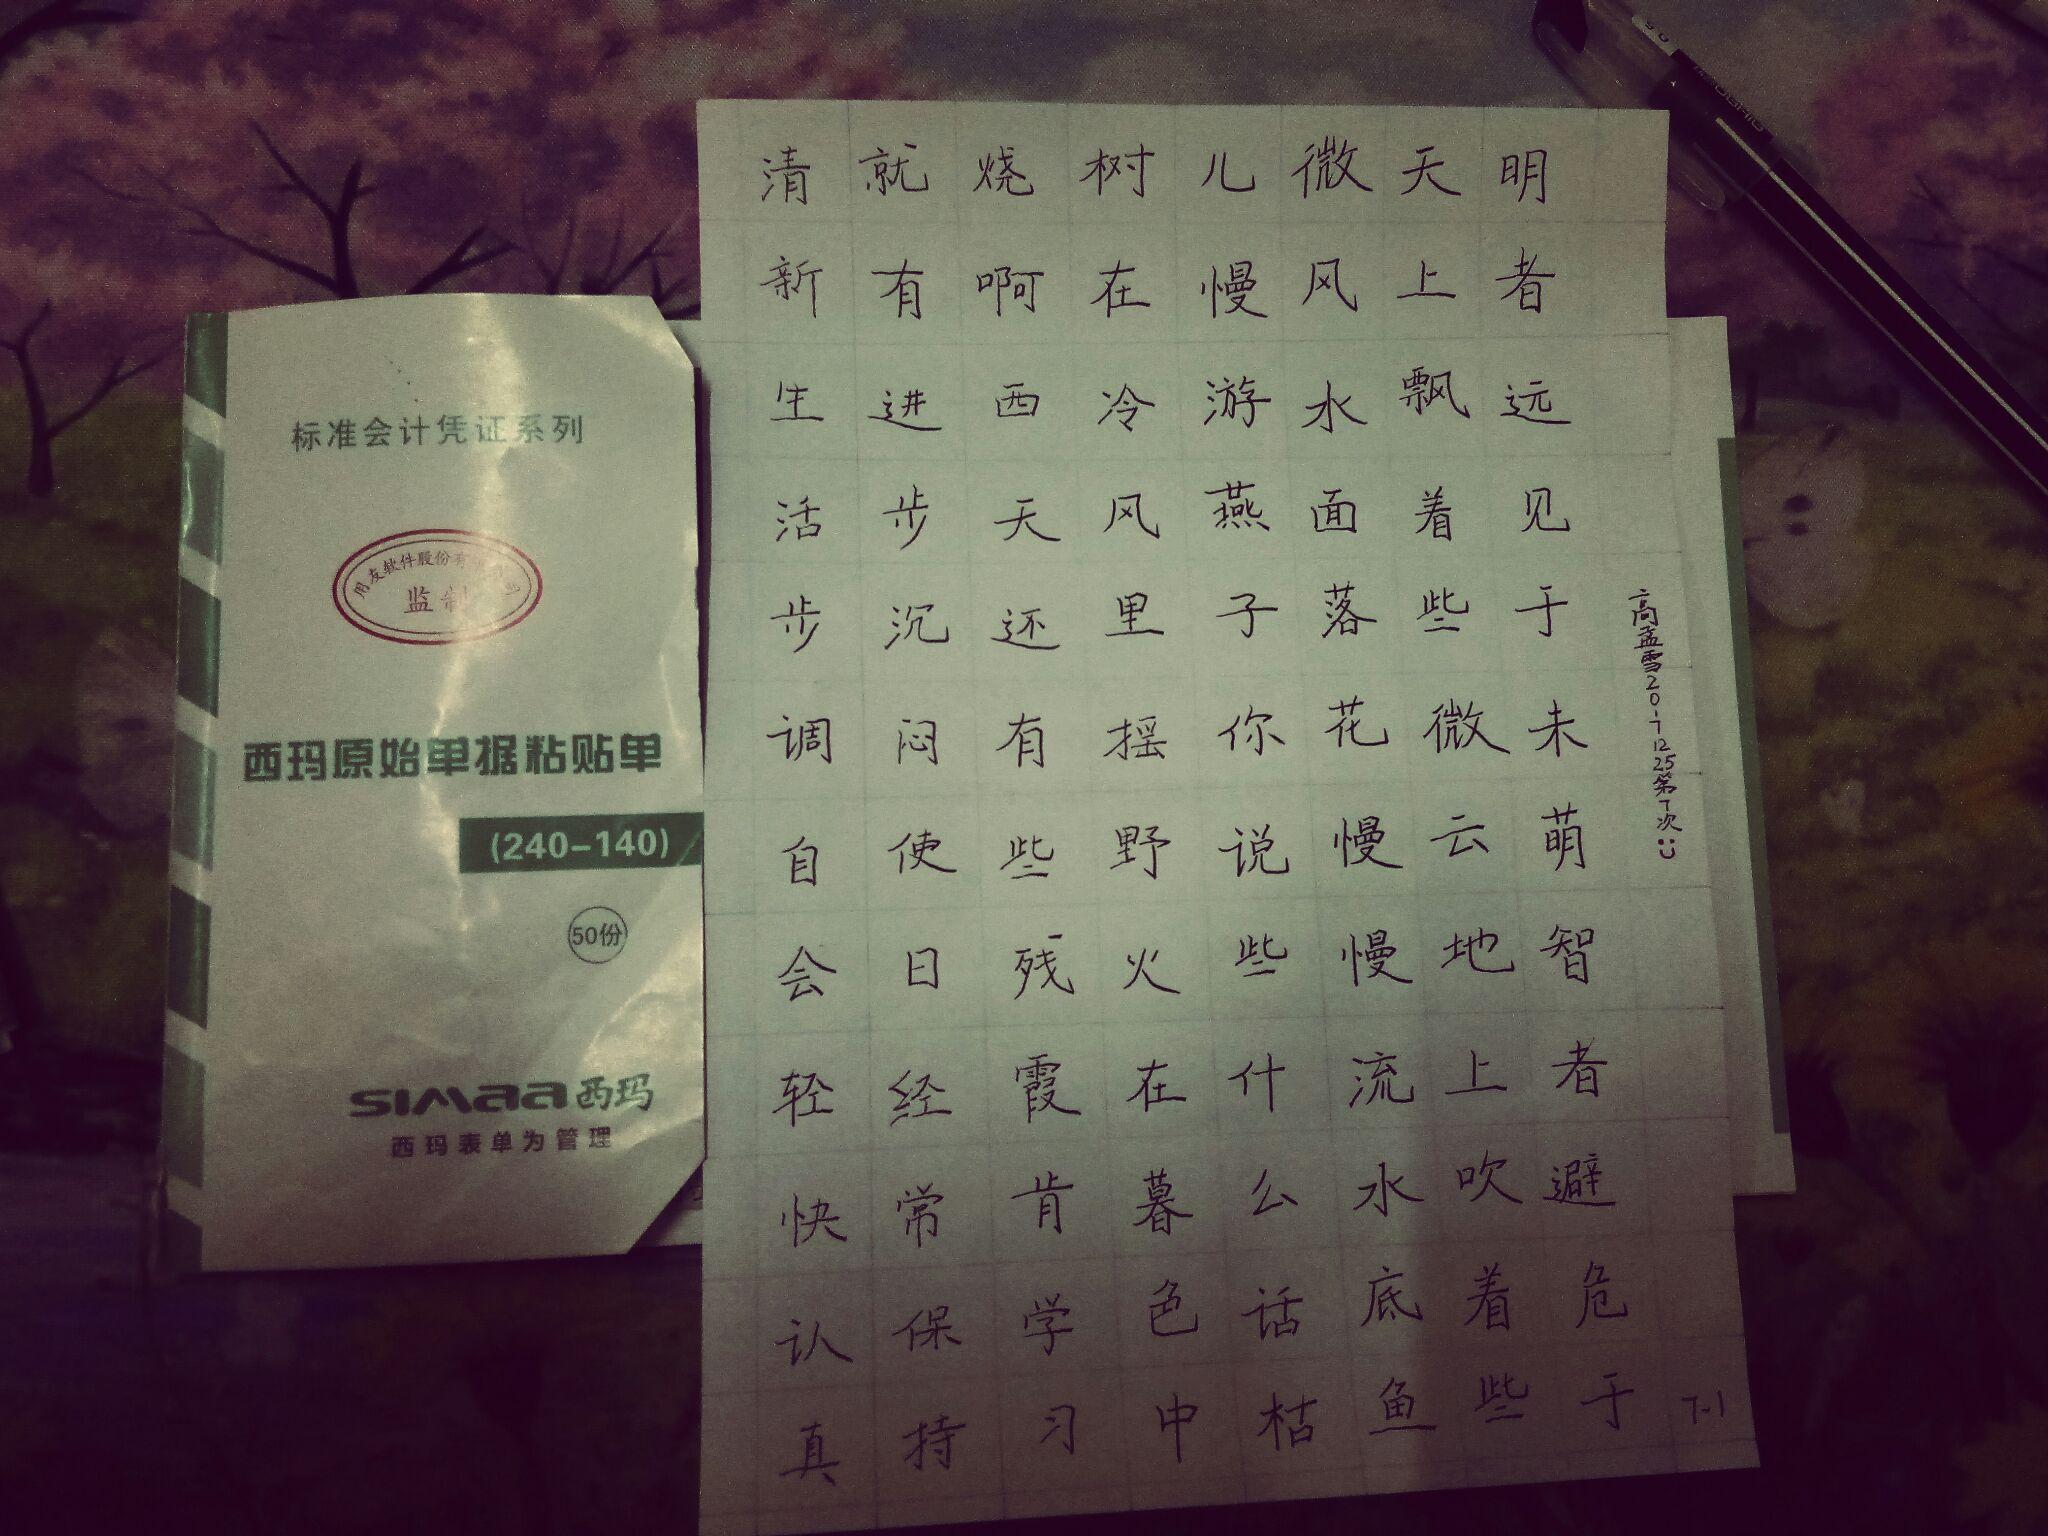 标准会计凭证系列
用友软件股份有
监制
西玛原始单据粘贴单
(240-140)
50份
SIMAA西玛
西玛表单为管理
明者远见于未萌智者避危于
天上飘着些微云地上吹着些
微风水面落花慢慢流水底鱼
儿慢游燕子你说些什么话枯
树在冷风里摇野火在暮色中
烧啊西天还有些残霞肯学习
就有进步沉闷使日经常保持
清新生活步调自会轻快认真
高孟雪2017 12 25第7次
7-1